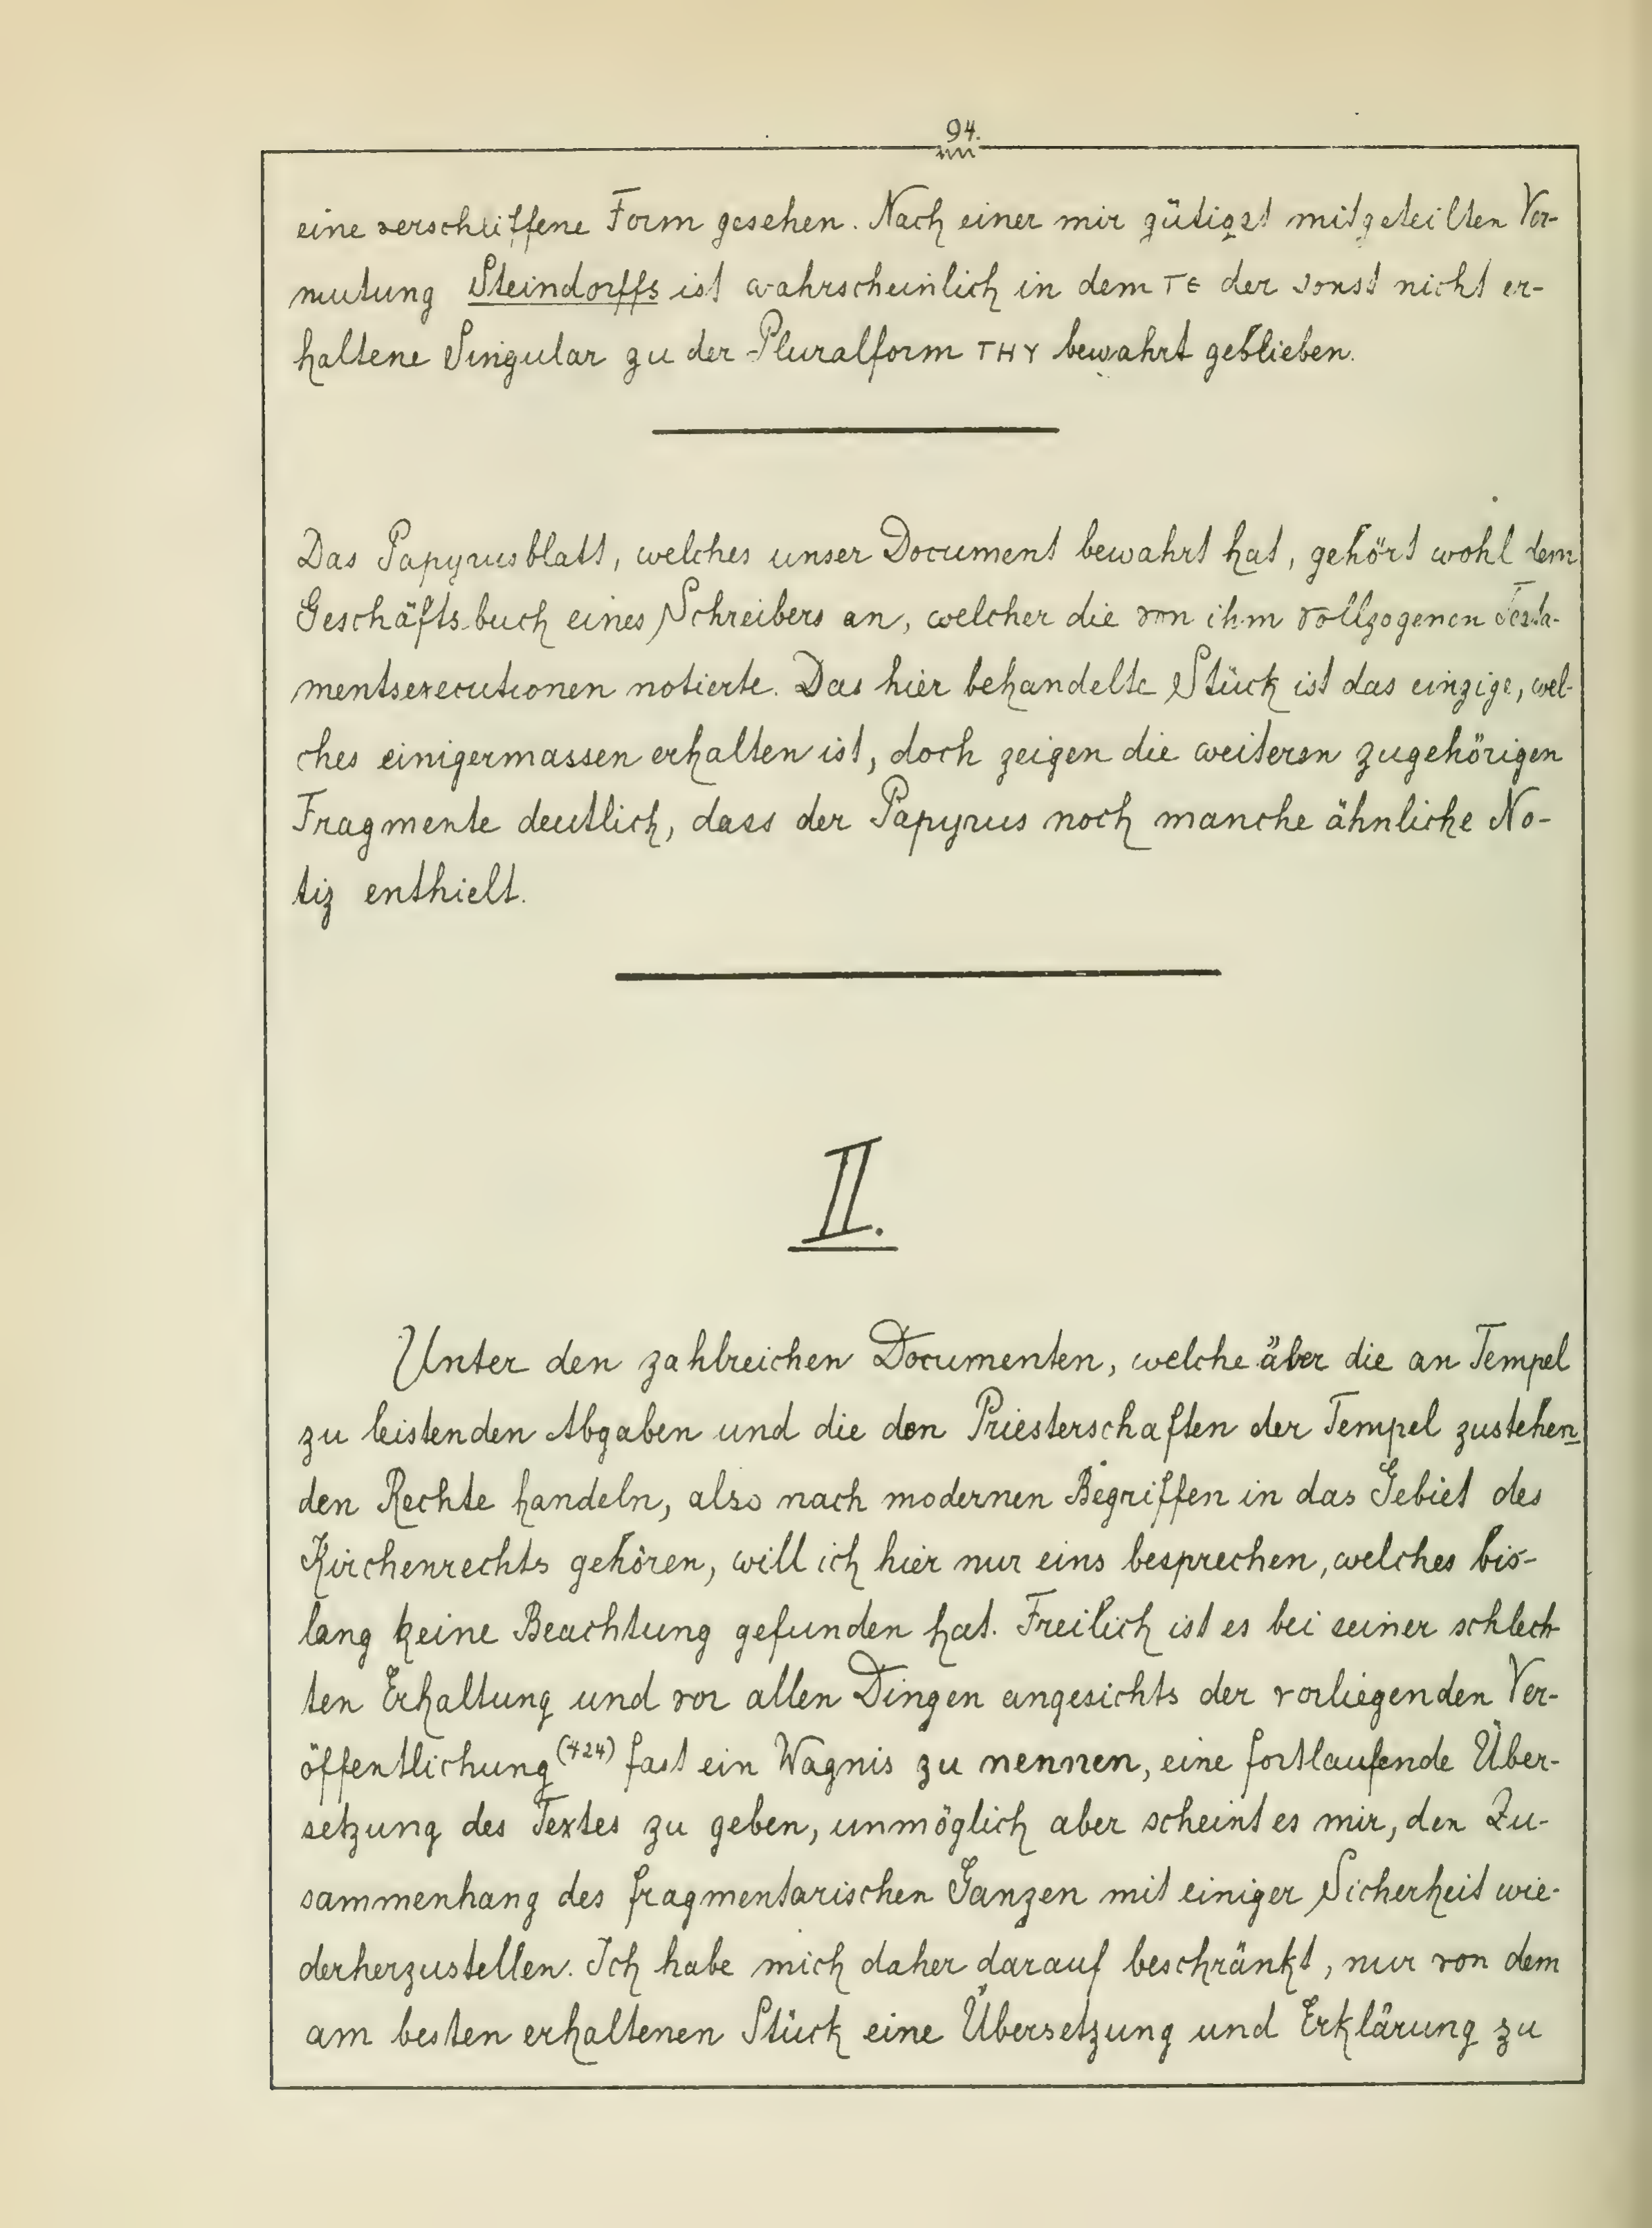 94.
eine verschliffene Form gesehen. Nach einer mir gütigst mitgeteilten Ver-
mutung Steindorffs ist wahrscheinlich in dem ΤЄ der sonst nicht er-
haltene Singular zu der Pluralform ΤΗΥ bewahrt geblieben.
Das Papyrusblatt, welches unser Document bewahrt hat, gehört wohl dem
Geschäftsbuch eines Schreibers an, welcher die von ihm vollzogenen Testa-
mentsexecutionen notierte. Das hier behandelte Stück ist das einzige, wel-
ches einigermassen erhalten ist, doch zeigen die weiteren zugehörigen
Fragmente deutlich, dass der Papyrus noch manche ähnliche No-
tiz enthielt.
II.
Unter den zahlreichen Documenten, welche über die an Tempel
zu leistenden Abgaben und die den Priesterschaften der Tempel zustehen-
den Rechte handeln, also nach modernen Begriffen in das Gebiet des
Kirchenrechts gehören, will ich hier nur eins besprechen, welches bis-
lang keine Beachtung gefunden hat. Freilich ist es bei seiner schlech-
ten Erhaltung und vor allen Dingen angesichts der vorliegenden Ver-
öffentlichung (424) fast ein Wagnis zu nennen, eine fortlaufende Über-
setzung des Textes zu geben, unmöglich aber scheint es mir, den Zu-
sammenhang des fragmentarischen Ganzen mit einiger Sicherheit wie-
derherzustellen. Ich habe mich daher darauf beschränkt, nur von dem
am besten erhaltenen Stück eine Übersetzung und Erklärung zu